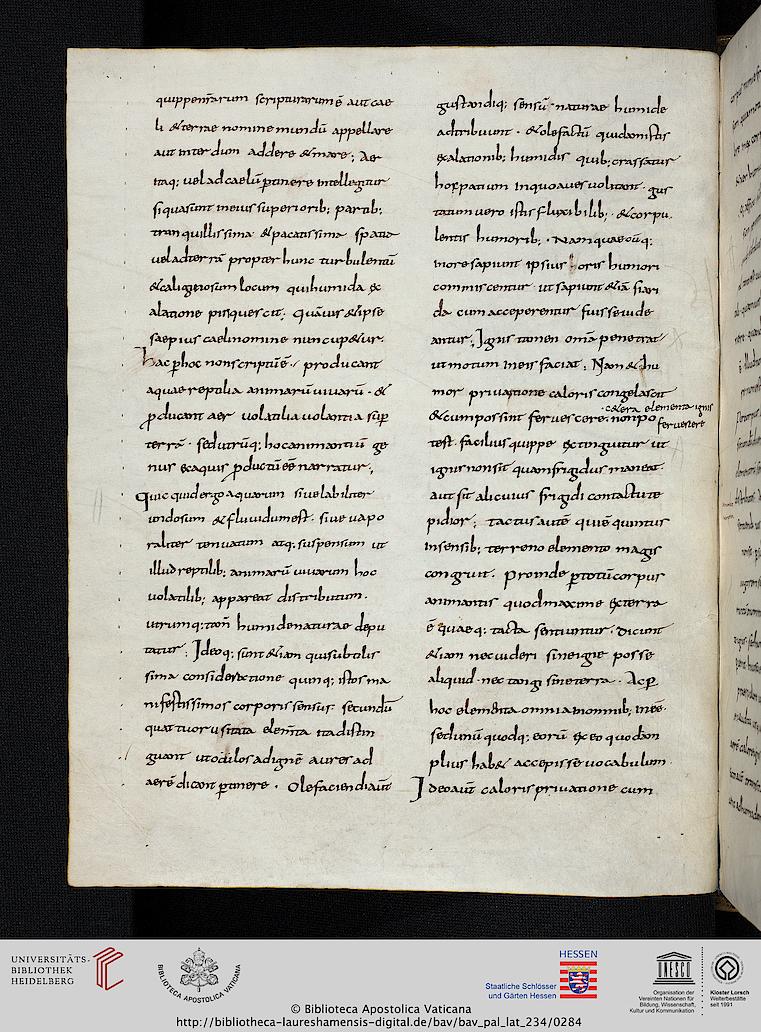 quippenr̄arum scripturarum ē aut cae
li & terrae nomine mundū appellare
aut interdum addere & mare; Aer
itaq; vel ad caelū ꝑtinere intellegitur
si qua sunt in eius superiorib; partib;
tranquillissima & pacatissima spatia
vel ad terrā propter hunc turbulentū
& caliginosum locum qui humida ex
alatione pinguescit; Quāuis & ipse
saepius caeli nomine nuncupetur.
hac ꝑ hoc non scriptū ē. producant
aquae reptilia animarū uiuarū. &
ꝓducant aer volatilia volantia suꝑ
terrā. sed utrūq; hoc animantiū ge
nus ex aquis ꝓductū eē narratur;
Quicquid ergo aquarum siue labiliter
undosum & fluuidum est. siue uapo
raliter tenuatum atq; suspensum ut
illud reptilib; animarū uiuarum hoc
volatilib; appareat distributum.
utrumq; tam̄ humidae naturae depu
tatur; Ideoq; sunt & iam qui subtilis
sima consideratione quinq; istos ma
nifestissimos corporis sensus. secundū
quattuor usitata elem̄ta ita distin
guant ut oculos ad ignē aures ad
aerē dicant ꝑtinere. Olefaciendi aut̄
gustandiq; sensū naturae humide
adtribuunt. & olefactū quidam istis
exalationib; humidis quib; crassatur
hoc spatium in quo aues volitant. gus
tatum vero istis fluxibilib; & corpu
lentis humorib;. Nam quaecūq;
in ore sapiunt ipsius oris humori
commiscentur ut sapiunt & iā si ari
da cum acceperentur fuisse uide
antur; Ignis tamen om̄a penetrat
ut motum in eis faciat; Nam & hu
mor priuatione caloris congelascit
& cum possint feruescere. non po
cetera elementa ignis
feruescere
test. facilius quippe extinguitur ut
ignis non sit quam frigidus maneat.
aut sit alicuius frigidi contactu te
pidior; tactus autē qui ē quintus
in sensib; terreno elemento magis
congruit. Proinde ꝑ totū corpus
animantis quod maxime ex terra
ē quaeq; tacta sentiuntur. dicunt
& iam nec uideri sine igne posse
aliquid. nec tangi sine terra. Ac ꝑ
hoc elem̄ta omnia in omnib; inēē.
sed unū quodq; eorū ex eo quod am
plius hab& accepisse vocabulum.
Ideo aut̄ caloris priuatione cum
UNIVERSITÄTS-
BIBLIOTHEK
HEIDELBERG
BIBLIOTECA APOSTOLICA VATICANA
HESSEN
Staatliche Schlösser
und Gärten Hessen
UNESCO
Organisation der
Vereinten Nationen für
Bildung, Wissenschaft,
Kultur und Kommunikation
Kloster Lorsch
Welterbestätte
seit 1991
© Biblioteca Apostolica Vaticana
http://bibliotheca-laureshamensis-digital.de/bav/bav_pal_lat_234/0284